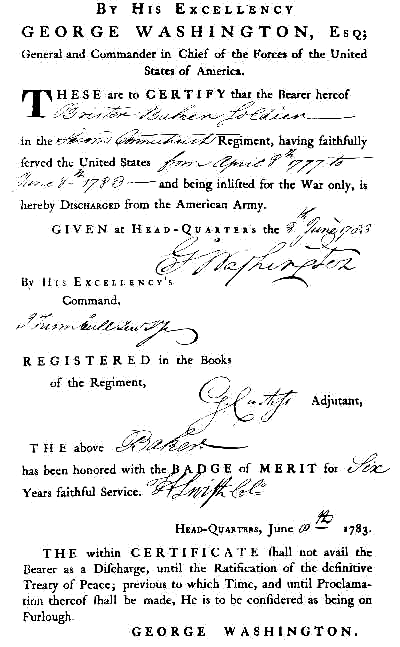 By His Excellency
GEORGE WASHINGTON, Esq;
General and Commander in Chief of the Forces of the United
States of America.
THESE are to CERTIFY that the Bearer hereof
Brister Baker Soldier
in the Second Connecticut Regiment, having faithfully
ſerved the United States from April 8th 1777 to
June 8th 1783 and being inliſted for the War only, is
hereby Discharged from the American Army.
GIVEN at Head-Quarters the 8th June 1783
G Washington
By His Excellency's
Command,
J Trumbull Jun
REGISTERED in the Books
of the Regiment,
Adjutant,
THE above Baker
has been honored with the BADGE of MERIT for Six
Years faithful Service. H Swift Col
Head-Quarters, June 8th 1783.
THE within CERTIFICATE ſhall not avail the
Bearer as a Diſcharge, until the Ratification of the definitive
Treaty of Peace; previous to which Time, and until Proclama-
tion thereof ſhall be made, He is to be conſidered as being on
Furlough.
GEORGE WASHINGTON.